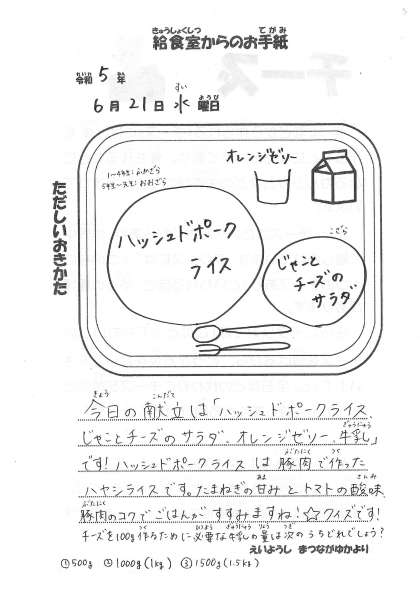 給食室からのお手紙
令和5年
6月21日水曜日
ただしいおきかた
1〜4年生:ふかざら
5年生〜先生:おおざら
オレンジゼリー
ハッシュドポーク
ライス
こざら
じゃこと
チーズの
サラダ
今日の献立は「ハッシュドポークライス、
じゃことチーズのサラダ、オレンジゼリー、牛乳」
です!ハッシュドポークライスは豚肉で作った
ハヤシライスです。たまねぎの甘みとトマトの酸味、
豚肉のコクでごはんがすすみますね!☆クイズです!
チーズを100g作るために必要な牛乳の量は次のうちどれでしょう?
えいようし まつながゆかより
①500g ②1000g(1kg) ③1500g(1.5kg)